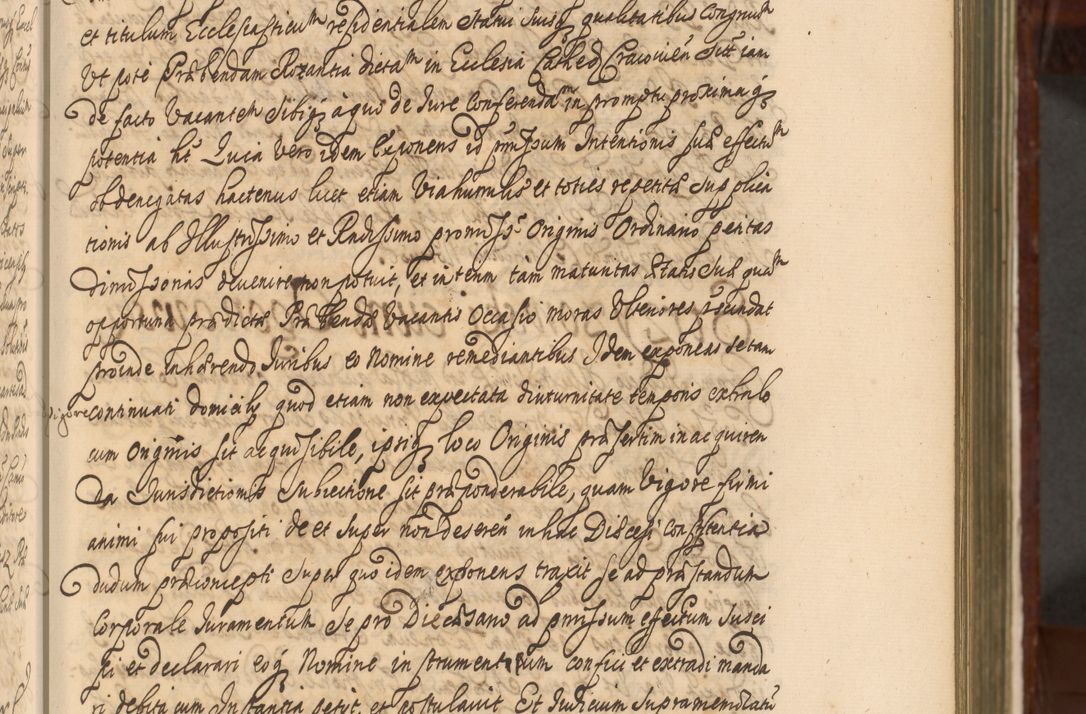 et titulum Ecclesiasticũ residentialem Statui suisq̃ qualitatibus congruũ
Ut poté Præbendam Rozantia dictam in Ecclesia Cathed. Cracovieñ sitã iam
de facto Vacantem sibiq̃ à quo de Jure conferendam in promptu proxima q̃
potentia ht̃ Quia Vero idem Exponens id præmissum Intentionis suæ effectũ
obdenegatas hactenus licet etiam Via humilis et toties repetitæ supplica
tionis ab Illustrissimo et Rndissimo promissæ Originis Ordinario petitas
Dimissorias devenire non potuit, et interim tam maturitas Ætatis suæ quam
opportuna prædictæ Præbendæ Vacantis Occasio moras Ulteriores
proinde inhærendo Juribus eo Nomine remediantibus Idem exponens se tam
vigore continuati domicilij quod etiam non expectata diuturnitate temporis ex tali lo
cum Originis sit acquisibile, ipsiq̃ loco Originis præsertim in acquiren
da Jurisdictionis subiectione sit præponderabile, quam Vigore firmi
animi sui propositi de et super non deseren̄ in hac Diœcesi consistentia
dudum præconcepti super quo idem exponens traxit se ad præstandum
Corporale Juramentum se pro Diœcesano ad præmissum effectum susci
pi et declarari eoq̃ Nomine instrumentum confici et extradi manda
ri debita cum Instantia petijt, et postulavit Et Judicium supramemoratũ